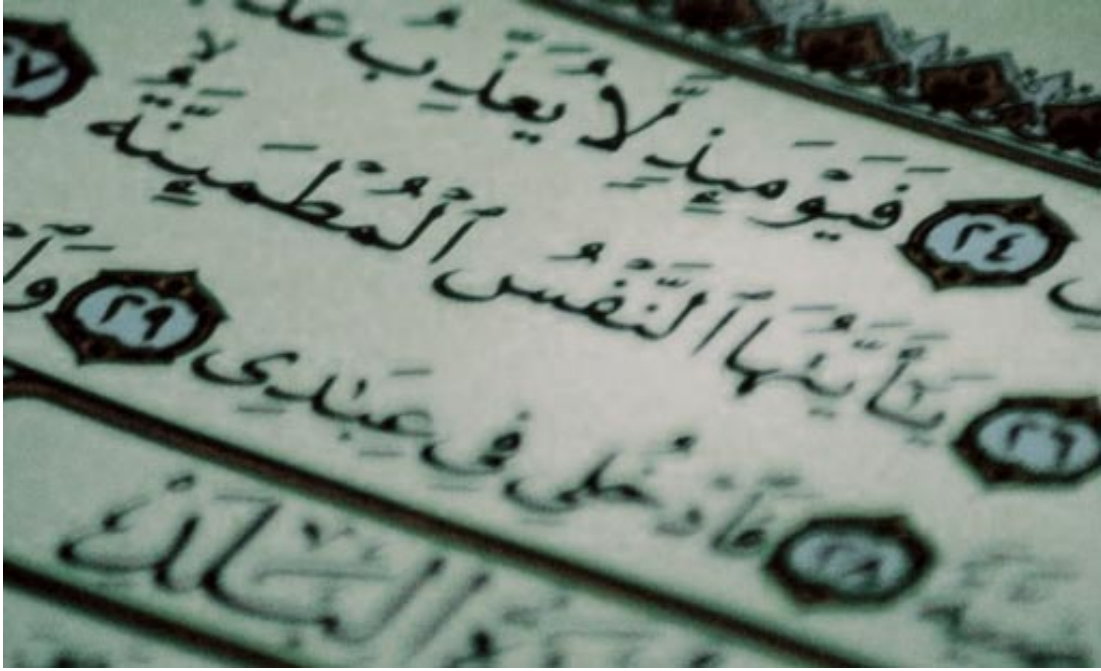 ٢٤ فَيَوْمَئِذٍ لَّا يُعَذِّبُ
٢٦ يَٰٓأَيَّتُهَا ٱلنَّفْسُ ٱلْمُطْمَئِنَّةُ ٢٧
٢٨ فَٱدْخُلِى فِى عِبَٰدِى ٢٩
سُورَةُ الْبَلَدِ